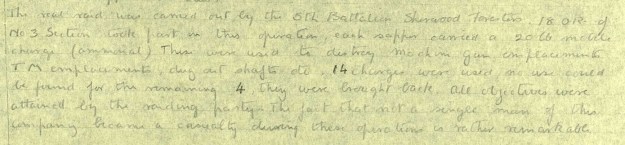 The real raid was carried out by the 8th Battalion Sherwood Foresters. 18 O.R. of
No 3 Section took part in this operation, each sapper carried a 20 lb mobile
charge (ammonal) These were used to destroy machine gun emplacements
T M emplacements, dug out shafts etc. 14 charges were used no use could
be found for the remaining 4, they were brought back. All objectives were
attained by the raiding party. The fact that not a single man of this
company became a casualty during these operations is rather remarkable